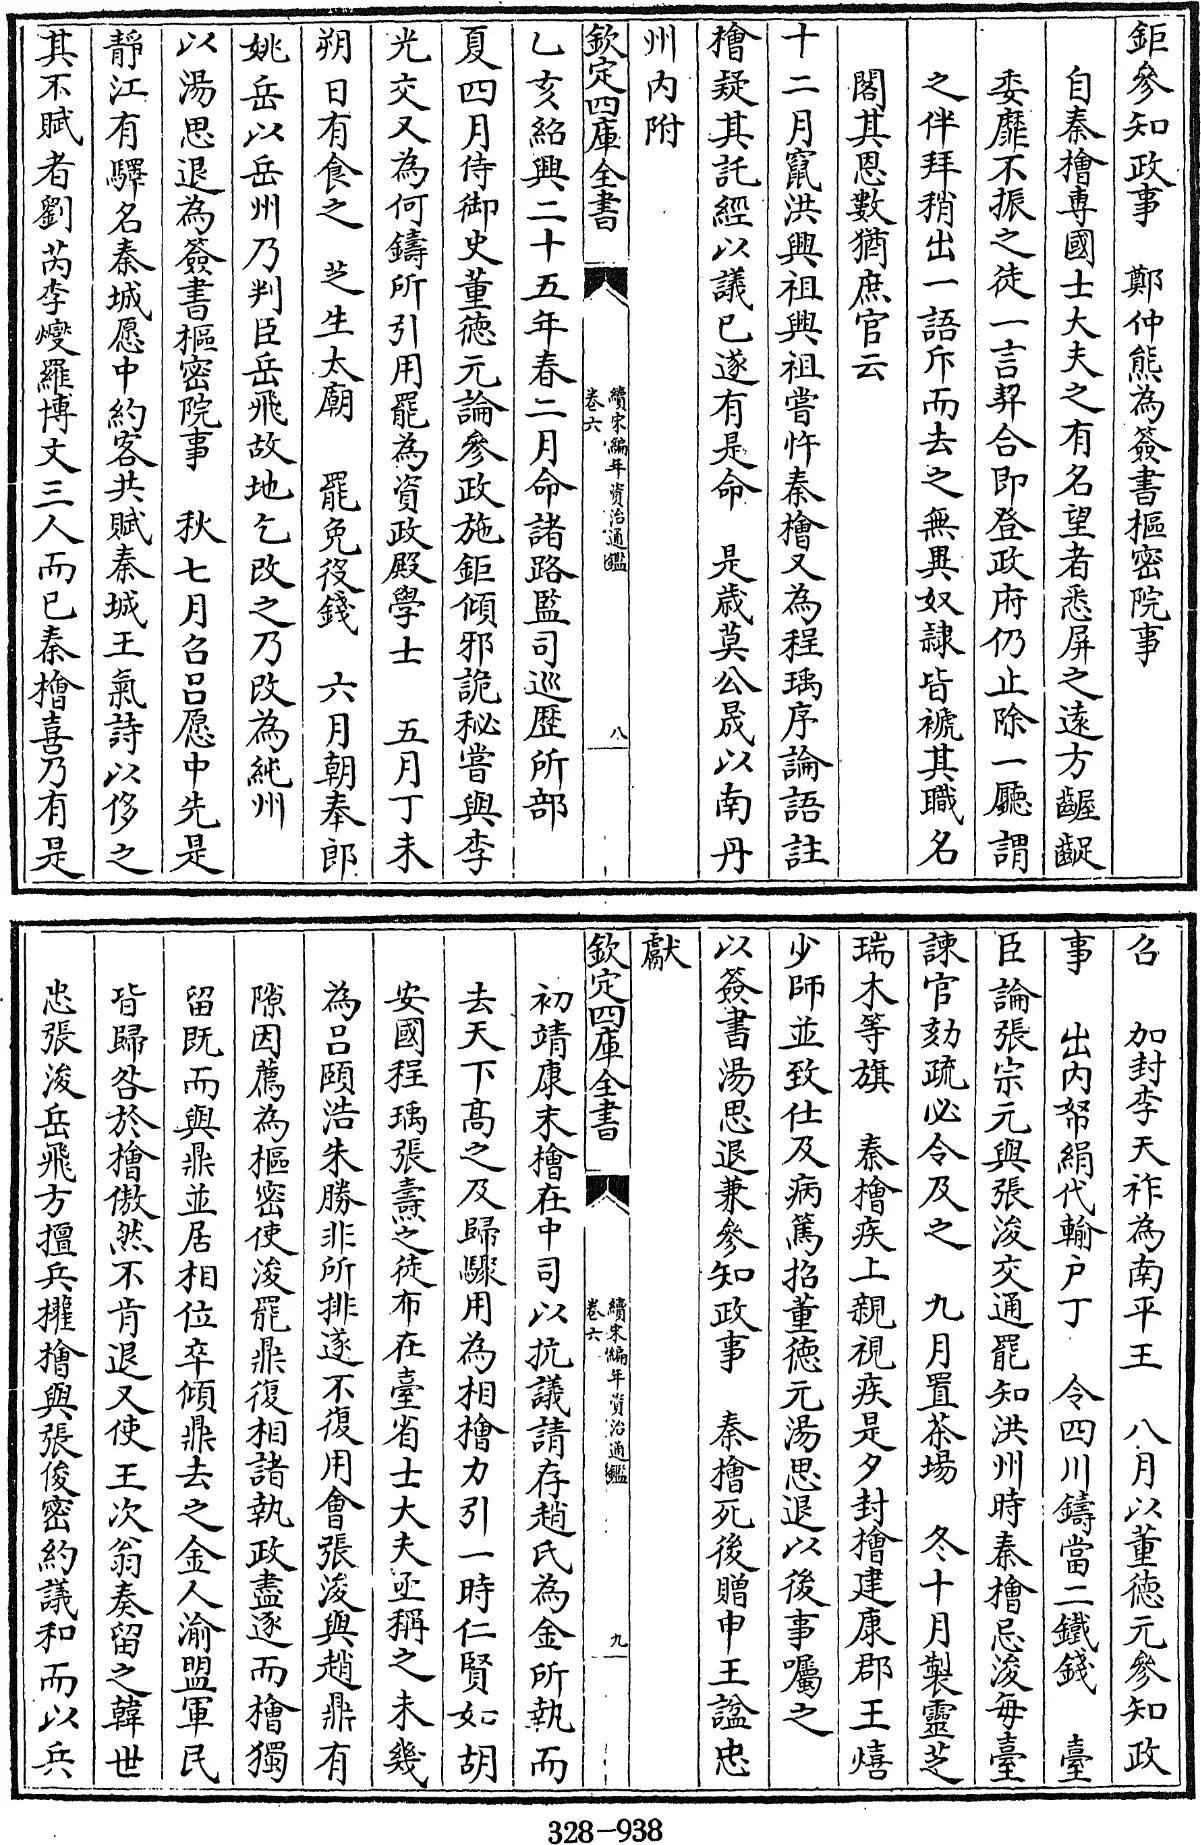 鉅參知政事　鄭仲熊為簽書樞密院事
自秦檜專國士大夫之有名望者悉屏之遠方齷齪
委靡不振之徒一言契合即登政府仍止除一廳謂
之伴拜稍出一語斥而去之無異奴隸皆褫其職名
閣其恩數猶庶官云
十二月竄洪興祖興祖嘗忤秦檜又為程瑀序論語註
檜疑其託經以議已遂有是命　是歲莫公晟以南丹
州内附
欽定四庫全書　續宋編年資治通鑑　卷六　八
乙亥紹興二十五年春二月命諸路監司巡歷所部
夏四月侍御史董德元論參政施鉅傾邪詭秘嘗與李
光交又為何鑄所引用罷為資政殿學士　五月丁未
朔日有食之　芝生太廟　罷免役錢　六月朝奉郎
姚岳以岳州乃判臣岳飛故地乞改之乃改為純州
以湯思退為簽書樞密院事　秋七月召呂愿中先是
靜江有驛名秦城愿中約客共賦秦城王氣詩以侈之
其不賦者劉芮李燮羅博文三人而已秦檜喜乃有是
召　加封李天祚為南平王　八月以董德元參知政
事　出内帑絹代輸户丁　令四川鑄當二鐵錢　臺
臣論張宗元與張浚交通罷知洪州時秦檜忌浚每臺
諫官劾疏必令及之　九月置茶場　冬十月製靈芝
瑞木等旗　秦檜疾上親視疾是夕封檜建康郡王熺
少師並致仕及病篤招董德元湯思退以後事囑之
以簽書湯思退兼參知政事　秦檜死後贈申王諡忠
獻
欽定四庫全書　續宋編年資治通鑑　卷六　九
初靖康末檜在中司以抗議請存趙氏為金所執而
去天下高之及歸驟用為相檜力引一時仁賢如胡
安國程瑀張燾之徒布在臺省士大夫亟稱之未幾
為呂頤浩朱勝非所排遂不復用會張浚與趙鼎有
隙因薦為樞密使浚罷鼎復相諸執政盡逐而檜獨
留既而與鼎並居相位卒傾鼎去之金人渝盟軍民
皆歸咎於檜傲然不肯退又使王次翁奏留之韓世
忠張浚岳飛方擅兵權檜與張俊密約議和而以兵
328-938